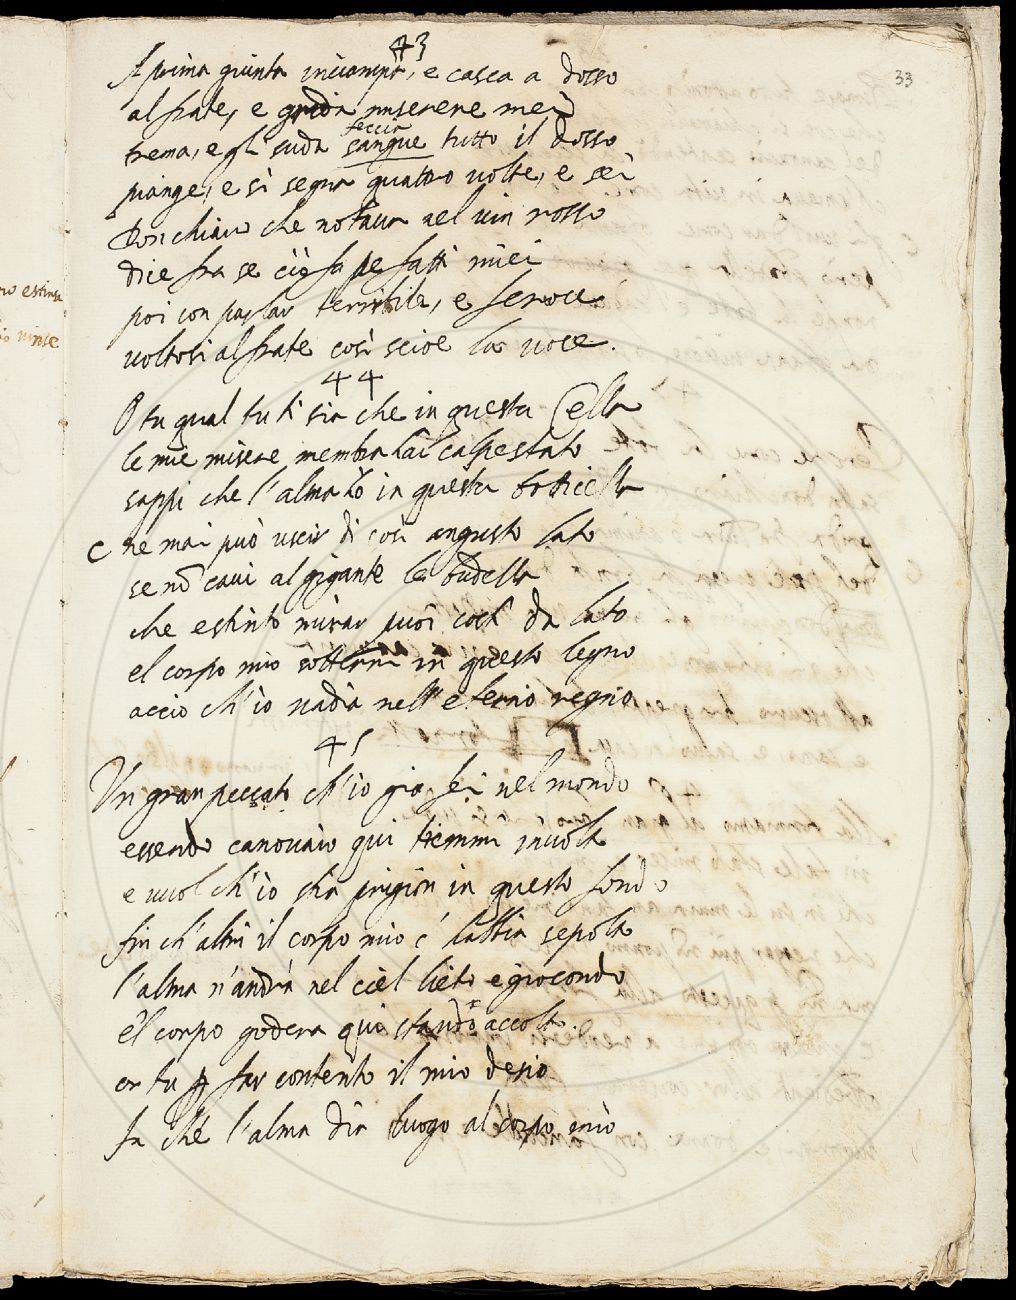 33
43
A prima giunta inciampa, e casca a dosso
al frate, e grida miserere mei
feccia
trema, e gli suda sangue tutto il dosso
piange, e si segna quattro volte, e sei
Don chiaro che notava nel vin rosso
dice fra se ciò fa pe fatti miei
poi con parlar terribile, e feroce
voltosi al frate così scioe la voce.
44
O tu qual tu ti sia che in questa Cella
le mie misere membra hai calpestato
sappi che l'alma ho in questa botticella
C ne mai può uscir di così angusto lato
se nō cavi al gigante le budella
che estinto mirar puoi costì da lato
el corpo mio sotterri in questo legno
acciò ch'io vadia nell'eterno regno
45
Un gran peccato ch'io già fei nel mondo
essendo canovaio qui tiemmi involto
e vuol ch'io stia prigion in questo fondo
fin ch'altri il corpo mio c'habbia sepolto
l'alma n'andrà nel ciel lieto e giocondo
e'l corpo goderà qui stando accolto.
or tu p far contento il mio desio
fa che l'alma dia luogo al corpo mio
ro estinse
vinse